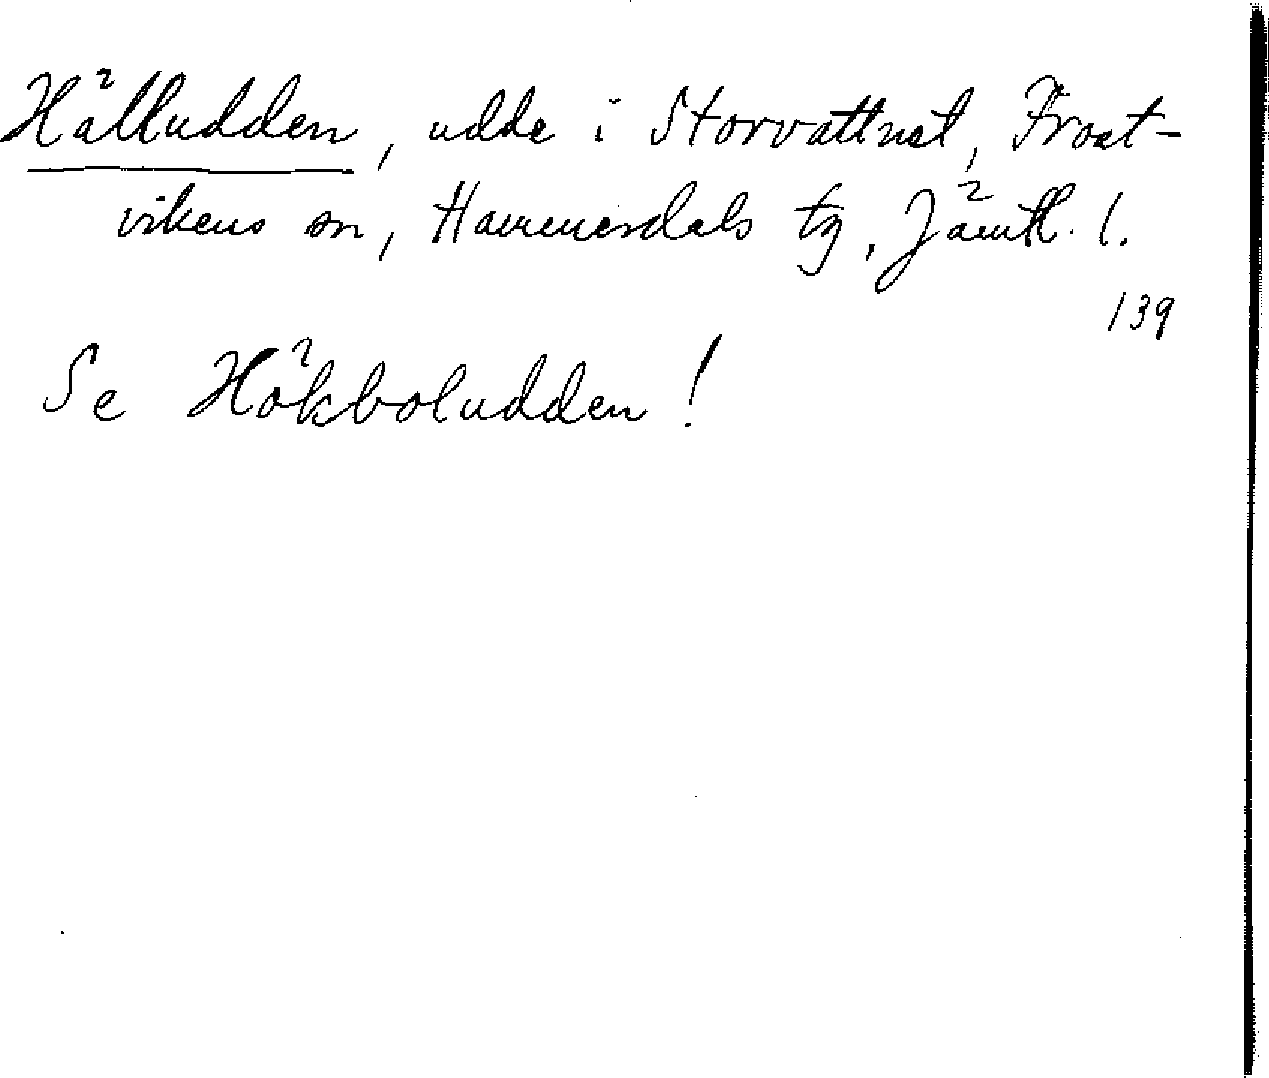 Hälludden, udde i Storvattnet, Frost-
vikens sn, Hammerdals tg, Jämtl. l.
139
Se Hökboludden!